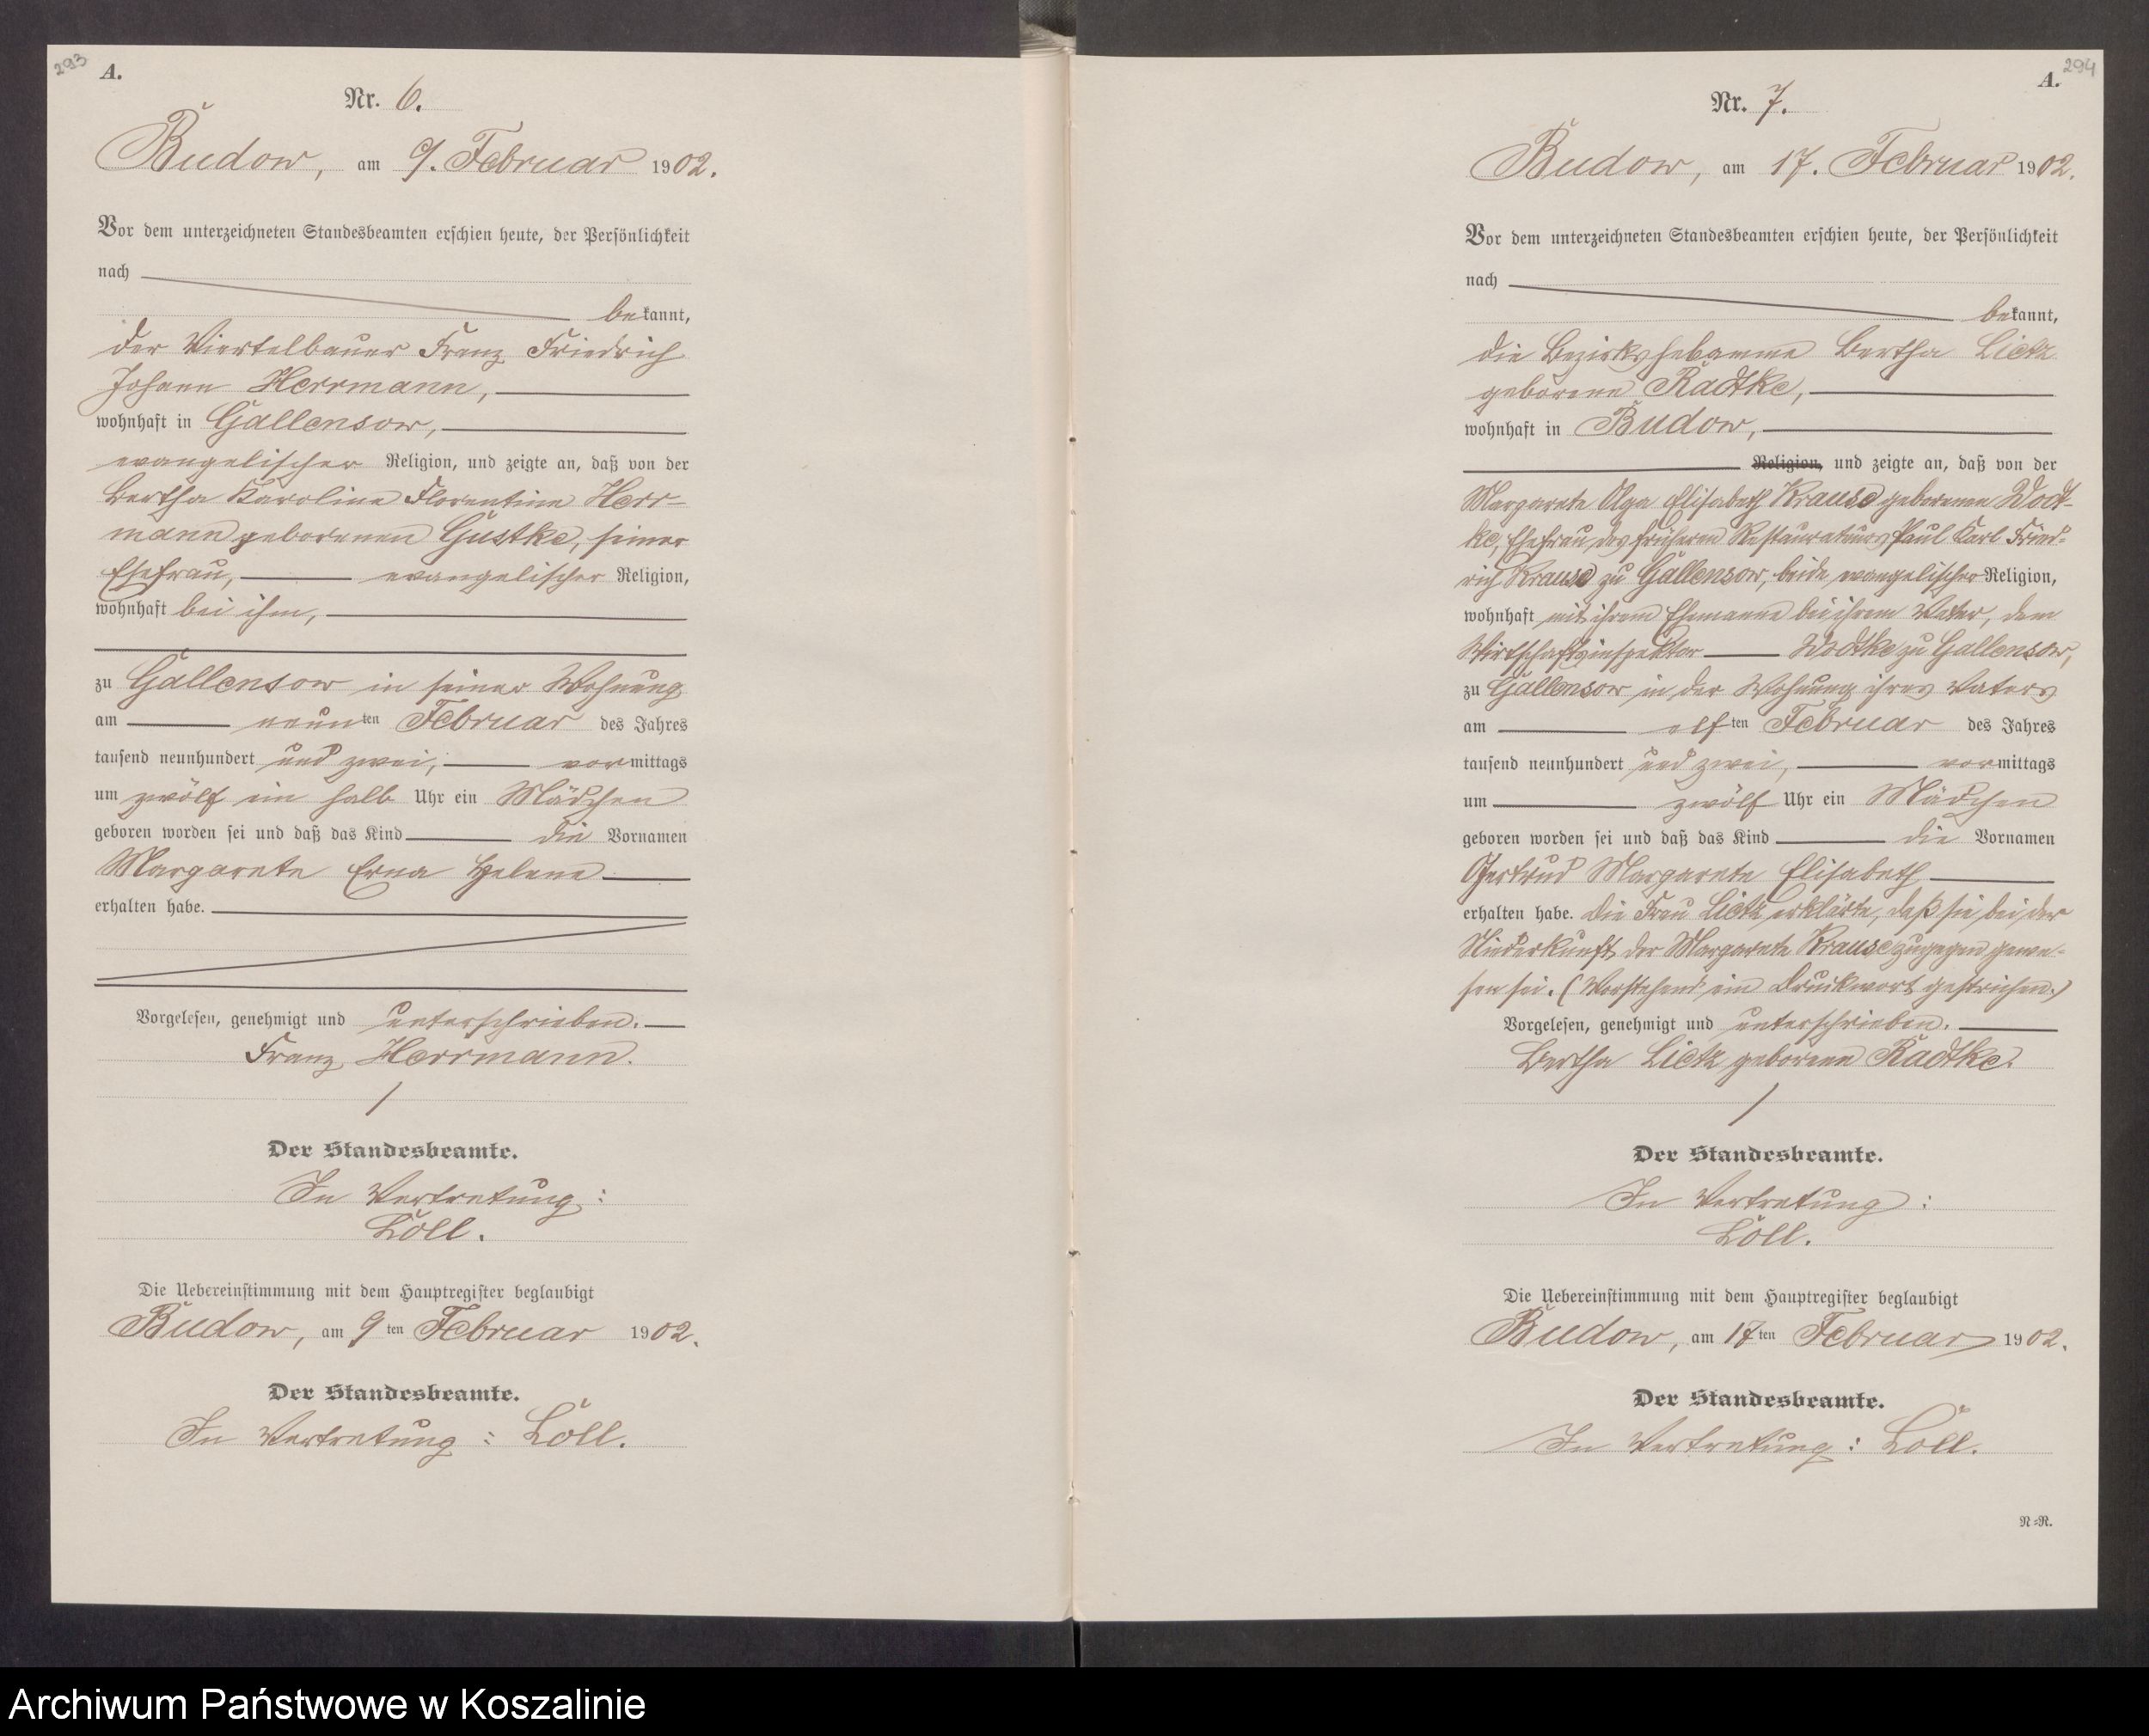 293
A.
Nr. 6.
Budow, am 9. Februar 1902.
Vor dem unterzeichneten Standesbeamten erschien heute, der Persönlichkeit
nach
bekannt,
der Viertelbauer Franz Friedrich
Johann Herrmann,
wohnhaft in Gallensow,
evangelischer Religion, und zeigte an, daß von der
Bertha Karoline Florentine Herr-
mann geborenen Gustke, seiner
Ehefrau, evangelischer Religion,
wohnhaft bei ihm,
zu Gallensow in seiner Wohnung
am neunten Februar des Jahres
tausend neunhundert und zwei, vormittags
um zwölf ein halb Uhr ein Mädchen
geboren worden sei und daß das Kind die Vornamen
Margarete Erna Helene
erhalten habe.
Vorgelesen, genehmigt und unterschrieben.
Franz Herrmann.
Der Standesbeamte.
In Vertretung:
Löll.
Die Uebereinstimmung mit dem Hauptregister beglaubigt
Budow, am 9ten Februar 1902.
Der Standesbeamte.
In Vertretung: Löll.
294
A.
Nr. 7.
Budow, am 17. Februar 1902.
Vor dem unterzeichneten Standesbeamten erschien heute, der Persönlichkeit
nach
bekannt,
die Bezirkshebamme Bertha Lietz
geborene Radtke,
wohnhaft in Budow,
Religion, und zeigte an, daß von der
Margarete Olga Elisabeth Krause geborenen Wodt-
ke, Ehefrau des früheren Restaurateurs Paul Karl Fried-
rich Krause zu Gallensow, beide evangelischer Religion,
wohnhaft mit ihrem Ehemanne bei ihrem Vater, dem
Wirtschaftsinspektor Wodtke zu Gallensow,
zu Gallensow in der Wohnung ihres Vaters
am elften Februar des Jahres
tausend neunhundert und zwei, vormittags
um zwölf Uhr ein Mädchen
geboren worden sei und daß das Kind die Vornamen
Gertrud Margarete Elisabeth
erhalten habe. Die Frau Lietz erklärte, daß sie bei der
Niederkunft der Margarete Krause zugegen gewe-
sen sei. (Vorstehend ein Druckwort gestrichen.)
Vorgelesen, genehmigt und unterschrieben.
Bertha Lietz geborene Radtke.
Der Standesbeamte.
In Vertretung:
Löll.
Die Uebereinstimmung mit dem Hauptregister beglaubigt
Budow, am 17ten Februar 1902.
Der Standesbeamte.
In Vertretung: Löll.
N=R.
Archiwum Państwowe w Koszalinie